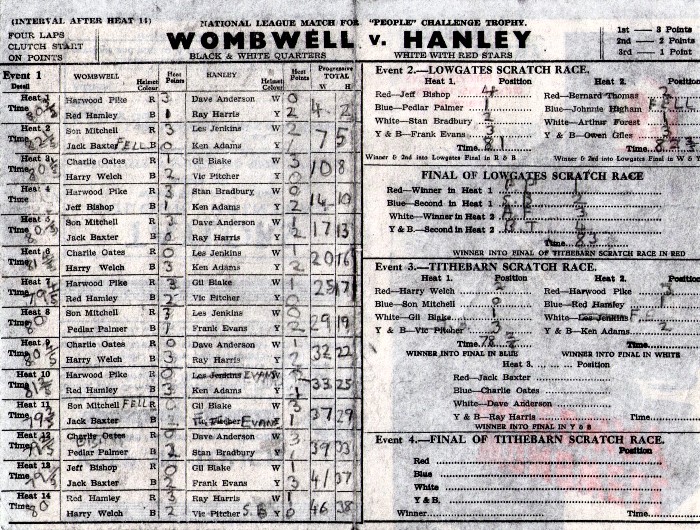 (INTERVAL AFTER HEAT 14)
NATIONAL LEAGUE MATCH FOR "PEOPLE" CHALLENGE TROPHY.
FOUR LAPS
CLUTCH START
ON POINTS
WOMBWELL v. HANLEY
BLACK & WHITE QUARTERS
WHITE WITH RED STARS
1st — 3 Points
2nd — 2 Points
3rd — 1 Point
Event 1
Detail
WOMBWELL
Helmet Colour
Heat Points
HANLEY
Helmet Colour
Heat Points
Progressive TOTAL
W H
Heat 1 Harwood Pike R 3 Dave Anderson W 0
Time Red Hamley B 1 Ray Harris Y 2 4 2
Heat 2 Son Mitchell R 3 Les Jenkins W 2
Time Jack Baxter FELL B 0 Ken Adams Y 1 7 5
Heat 3 Charlie Oates R 1 Gil Blake W 3
Time Harry Welch B 2 Vic Pitcher Y 10 8
Heat 4 Harwood Pike R 3 Stan Bradbury W 0
Time Jeff Bishop B 1 Ken Adams Y 2 14 10
Son Mitchell R Dave Anderson W
Time Jack Baxter B 0 Ray Harris Y 17 13
Charlie Oates R 0 Les Jenkins W
Time Harry Welch B 3 Ken Adams Y 2 20 16
Harwood Pike R 3 Gil Blake W 1
Time Red Hamley B 2 Vic Pitcher Y 0 25 17
Heat 8 Son Mitchell R 3 Les Jenkins W
Time 80 Pedlar Palmer B Frank Evans Y 2 29 19
Heat 9 Charlie Oates R 0 Dave Anderson W
Time Harry Welch B 3 Ray Harris Y 2 32 22
Heat 10 Harwood Pike R 0 Les Jenkins EVANS W
Time Red Hamley B 3 Ken Adams Y 1 33 25
Heat 11 Son Mitchell FELL R 0 Gil Blake W 3
Time Jack Baxter B 2 Vic Pitcher EVANS 1 37 29
Charlie Oates R 0 Dave Anderson W 3
Time Pedlar Palmer B 2 Stan Bradbury Y 1 39 33
Heat 13 Jeff Bishop R 0 Gil Blake W 1
Time Jack Baxter B 2 Frank Evans Y 3 41 37
Heat 14 Red Hamley R 3 Ray Harris W 1
Time 80 Harry Welch B 2 Vic Pitcher S.B Y 0 46 38
Event 2.—LOWGATES SCRATCH RACE.
Heat 1. Position
Heat 2. Position
Red—Jeff Bishop 4
Red—Bernard Thomas 2
Blue—Pedlar Palmer 1
Blue—Johnnie Higham FELL
White—Stan Bradbury 2
White—Arthur Forest 1
Y & B—Frank Evans 3
Y & B—Owen Giles 3
Time 81
Time
Winner & 2nd into Lowgates Final in R & B
Winner & 2nd into Lowgates Final in W & Y
FINAL OF LOWGATES SCRATCH RACE
Position
Red—Winner in Heat 1
Blue—Second in Heat 1
White—Winner in Heat 2
Y & B.—Second in Heat 2
Time 83
WINNER INTO FINAL OF TITHEBARN SCRATCH RACE IN RED
Event 3.—TITHEBARN SCRATCH RACE.
Heat 1. Position
Heat 2. Position
Red—Harry Welch 2
Red—Harwood Pike 3
Blue—Son Mitchell 0
Blue—Red Hamley 1
White—Gil Blake 1
White—Les Jenkins
Y & B—Vic Pitcher 3
Y & B—Ken Adams 2
Time
Time
WINNER INTO FINAL IN BLUE
WINNER INTO FINAL IN WHITE
Heat 3. Position
Red—Jack Baxter
Blue—Charlie Oates
White—Dave Anderson
Y & B—Ray Harris
Time
WINNER INTO FINAL IN Y & B
Event 4.—FINAL OF TITHEBARN SCRATCH RACE.
Position
Red
Blue
White
Y & B,
Winner
Time